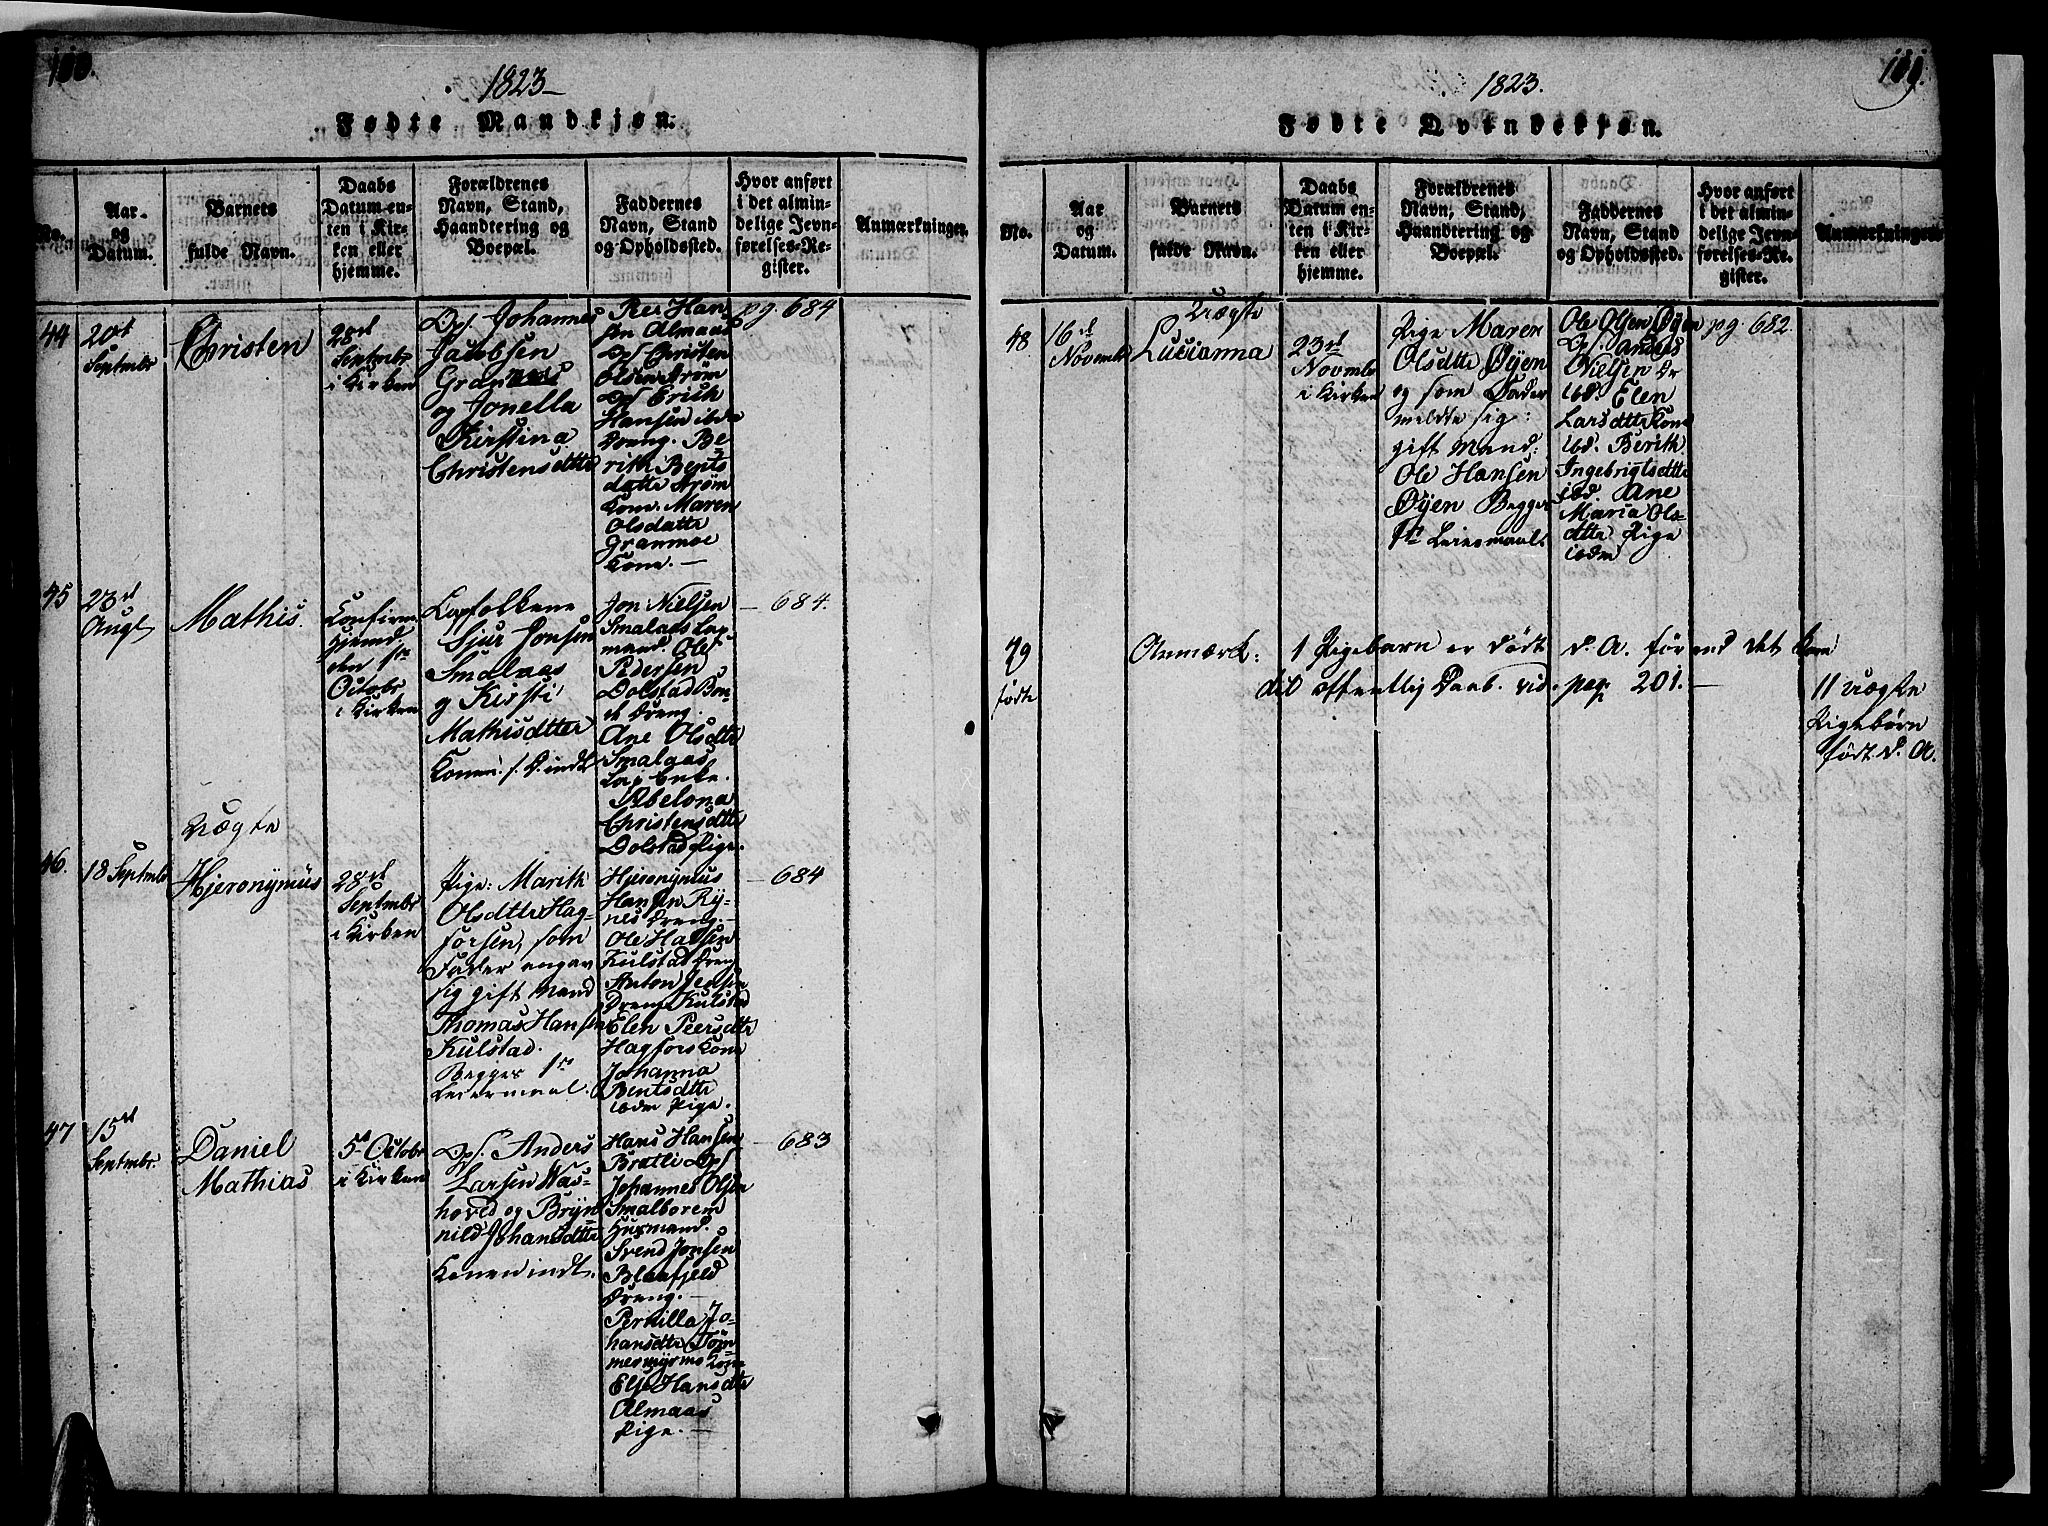 100.
1823
Fødte Mandkjøn.
No.
Aar-
og
Datum.
Barnets
fulde Navn.
Daabs
Datum en-
ten i Kir-
ken eller
hjemme.
Forældrenes
Navn, Stand,
Haandtering og
Boepæl.
Faddernes
Navn, Stand
og Opholdssted.
Hvor anført
i det almin-
delige Jevn-
førelses-Re-
gister.
Anmærkninger.
44
20de
Septmbr
Christen
28de
Septmbr
i Kirken
Dpf. Johannes
Jacobsen
Granmoe
og Jonella
Kirstina
Christensdttr
Per Han
sen Almaas
Dpf Christen
Olsen Strøm
Dpf Erich
Hansen ibd
Dreng. Be
rith Bents
datte Strøm
Kone. Maren
Olsdatte
Granmoe
Kone.
pg. 684
45
23de
Augt
Mathis.
Confirm.
hjemd
den 1ste
Octobr
i Kirken
Lapfolkene
Sjur Jonsen
Smalaas
og Kirsti
Mathisdtter
Konen
Jon Nielsen
Smalaas Lap
mand. Ole
Pedersen
Dolstad
Dreng.
Ane Olsdttr
Smalaas
Lap Enke.
Abelona
Christensdttr
Dolstad Pige.
684.
46.
18 Septmbr
Uægte
Hjeronymus
28de
Septmbr
i Kirken
Pige: Marith
Olsdttr Hag-
forsen, som
Fader angav
sig gift Mand
Thomas Hansen
Kulstad.
Begges 1ste
Leiermaal.
Hjeronymus
Hansen Ry-
nes Dreng.
Ole Hansen
Kulstad Dreng
Anton Jensen
Dreng Kulstad
Elen Peersdttr
Hagfors Kone
Johanna
Bentsdttr
ibdm Pige.
684
47
15de
Septmbr.
Daniel
Mathias
5te Octobr
i Kirken
Dpf. Anders
Larsen Næs-
hoved og Bryn
nild Johansdttr
Konen indl.
Hans Hansen
Bratli Dpf
Johannes Olsen
Smalborem
Huusmand.
Svend Jonsen
Blaafjeld
Dreng.
Pernilla Jo-
hansdttr Tøm
mermyrmo Kone
Else Hansdttr
Almaas
Pige.
683
101.
1823.
Fødte Qvindekjøn.
No.
Aar
og
Datum.
Barnets
fulde Navn.
Daabs
Datum en-
ten i Kir-
ken eller
hjemme.
Forældrenes
Navn, Stand,
Haandtering og
Boepæl.
Faddernes
Navn, Stand
og Opholdssted.
Hvor anført
i det almin-
delige Jevn-
førelses-Re-
gister.
Anmærkninger.
48
16de
Novembr
Uægte
Lucianna
23de
Novmbr
i Kirken
Pige Maren
Olsdtte Øyen
og som Fader
meldte sig:
gift Mand:
Ole Hansen
Øyen Begges
1ste Leiermaal.
Ole Olsen Øyen
Dpf. Anders
Nielsen Dr
ibd. Elen
Larsdttr Kone
ibd. Berith
Ingebrigtsdttr
ibd. Ane
Maria Ols-
dttr Pige
ibdm
pg. 682.
49
fødte
Anmærk: 1 Pigebarn er dødt d. A. førend det kom
til offentlig Daab. vid. pag. 201.
11 uægte
Pigebørn
født d. A.